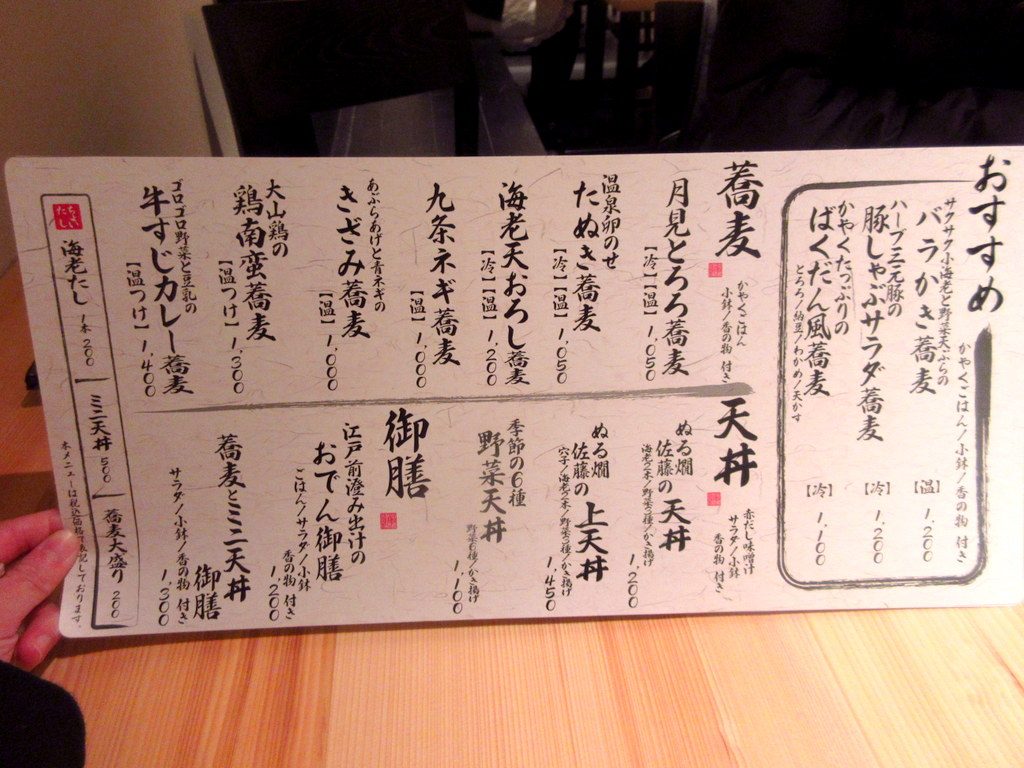 おすすめ
かやくごはん/小鉢/香の物 付き
サクサク小海老と野菜天ぷらの
バラかき蕎麦
【温】 1,200
ハーブ三元豚の
豚しゃぶサラダ蕎麦
【冷】 1,200
かやくたっぷりの
ばくだん風蕎麦
とろろ/納豆/わかめ/天かす
【冷】 1,100
蕎麦
かやくごはん
小鉢/香の物 付き
月見とろろ蕎麦
【冷】【温】 1,050
温泉卵のせ
たぬき蕎麦
【冷】【温】 1,050
海老天おろし蕎麦
【冷】【温】 1,200
九条ネギ蕎麦
【温】 1,000
あぶらあげと青ネギの
きざみ蕎麦
【温】 1,000
大山鶏の
鶏南蛮蕎麦
【温つけ】 1,300
ゴロゴロ野菜と豆乳の
牛すじカレー蕎麦
【温つけ】 1,400
天丼
赤だし味噌汁
サラダ/小鉢
香の物 付き
ぬる燗
佐藤の 天丼
海老2本/野菜3種/かき揚げ
1,200
ぬる燗
佐藤の 上天丼
穴子/海老2本/野菜3種/かき揚げ
1,450
季節の6種
野菜天丼
野菜6種/かき揚げ
1,100
御膳
江戸前澄み出汁の
おでん御膳
ごはん/サラダ/小鉢
香の物 付き
1,200
蕎麦とミニ天丼
御膳
サラダ/小鉢/香の物 付き
1,300
ちょい
たし
海老たし 1本 200
ミニ天丼 500
蕎麦大盛り 200
本メニューは税込価格で表記しております。